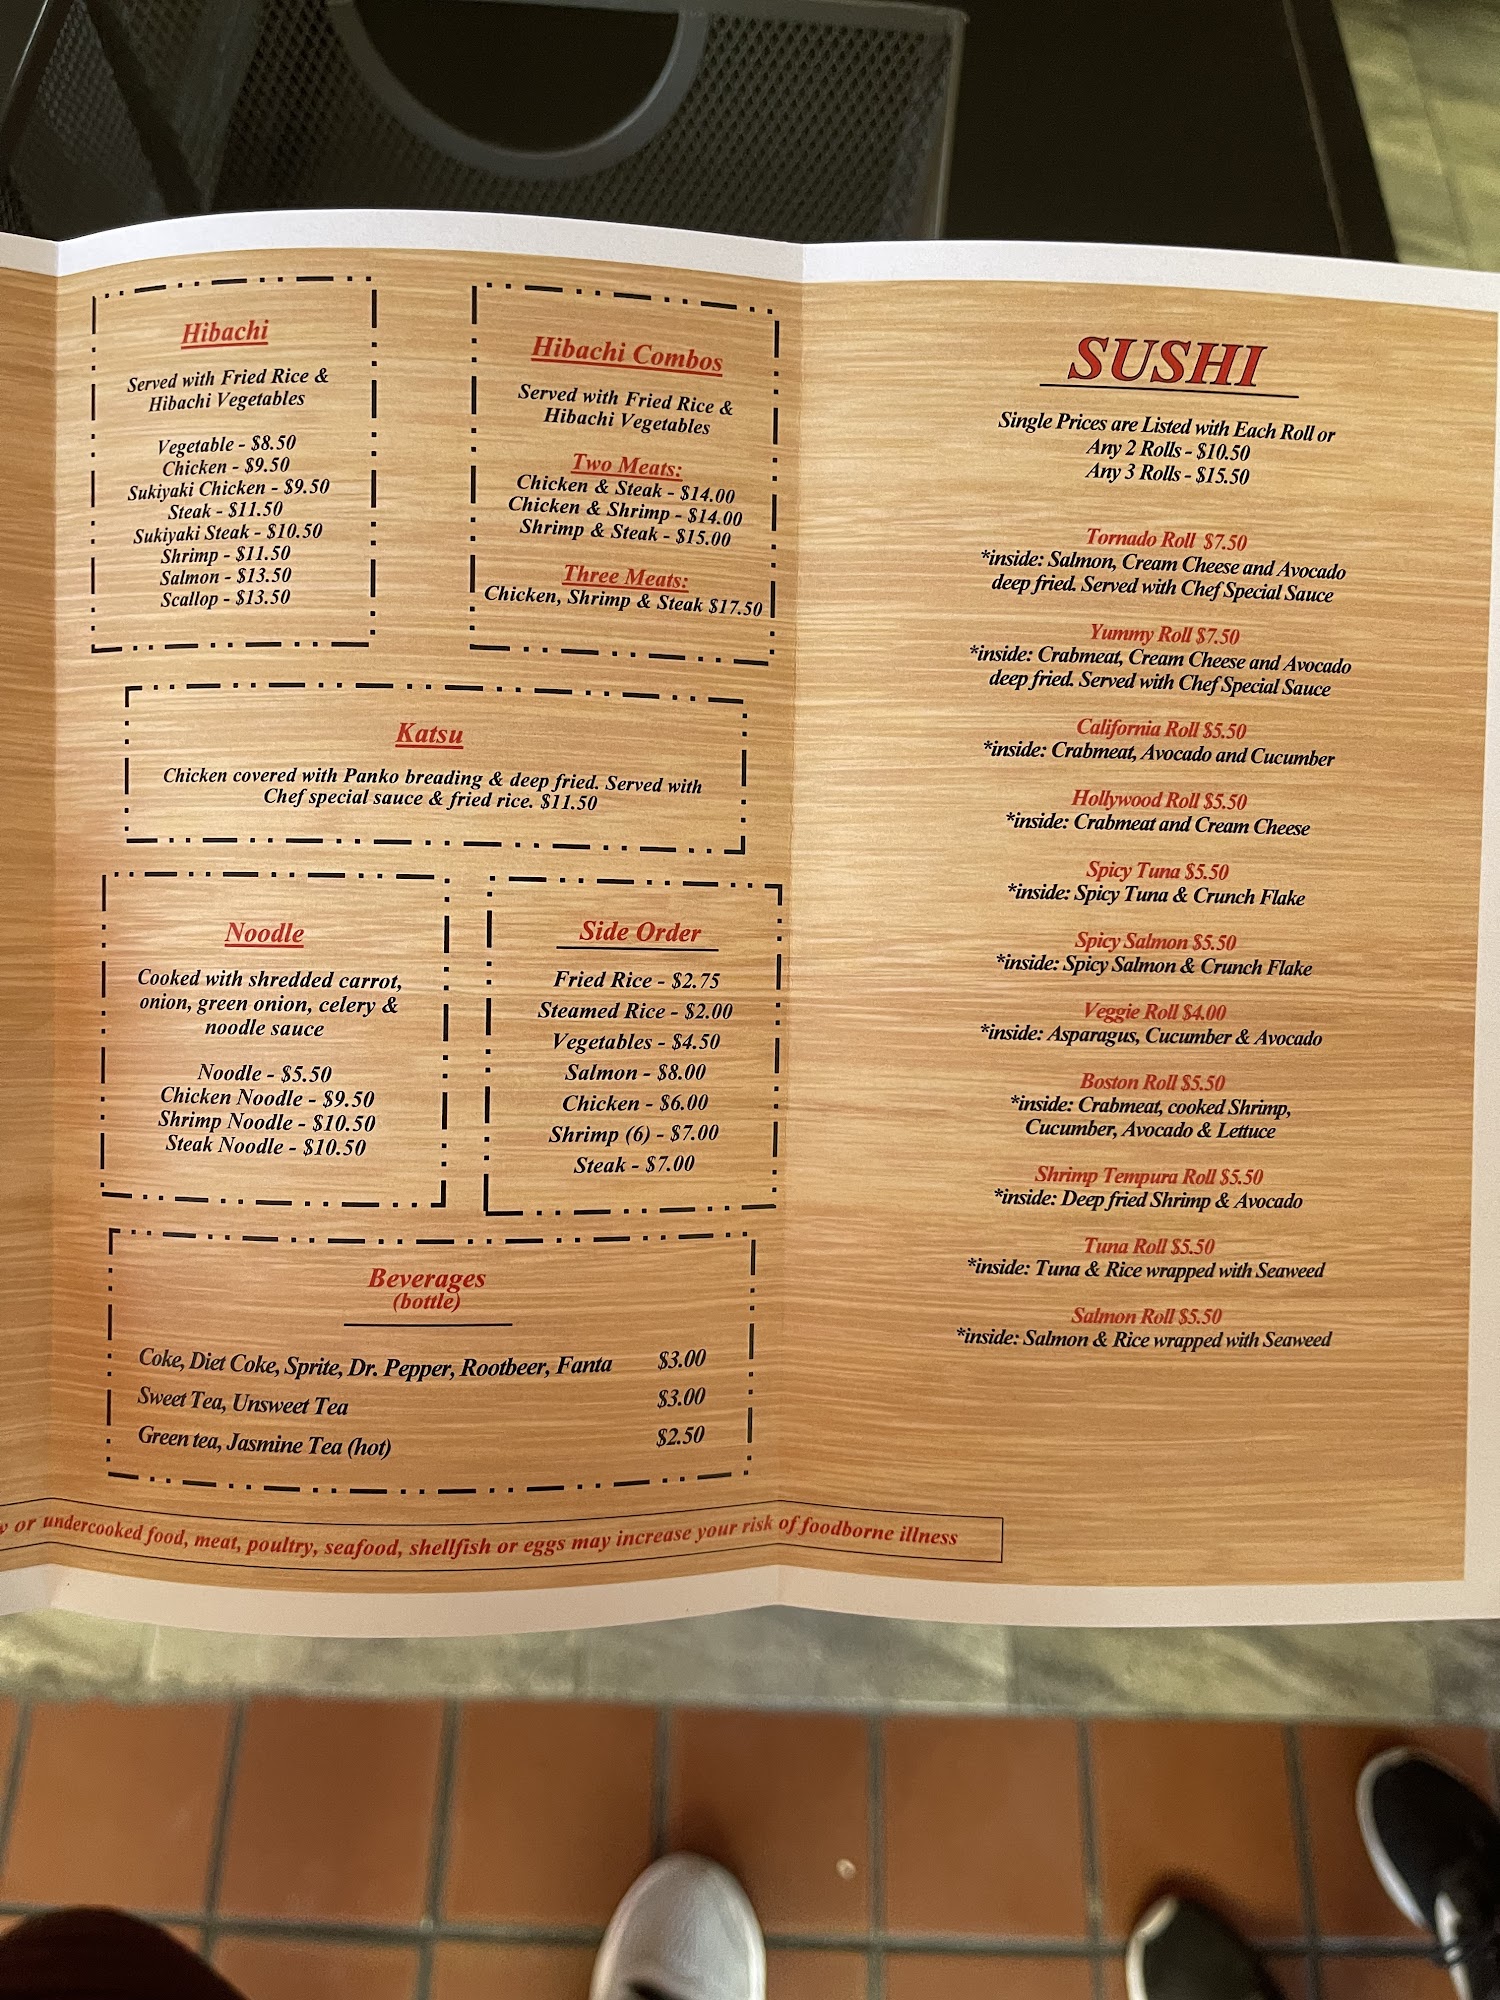 Hibachi
Served with Fried Rice &
Hibachi Vegetables
Vegetable - $8.50
Chicken - $9.50
Sukiyaki Chicken - $9.50
Steak - $11.50
Sukiyaki Steak - $10.50
Shrimp - $11.50
Salmon - $13.50
Scallop - $13.50
Hibachi Combos
Served with Fried Rice &
Hibachi Vegetables
Two Meats:
Chicken & Steak - $14.00
Chicken & Shrimp - $14.00
Shrimp & Steak - $15.00
Three Meats:
Chicken, Shrimp & Steak $17.50
Katsu
Chicken covered with Panko breading & deep fried. Served with
Chef special sauce & fried rice. $11.50
Noodle
Cooked with shredded carrot,
onion, green onion, celery &
noodle sauce
Noodle - $5.50
Chicken Noodle - $9.50
Shrimp Noodle - $10.50
Steak Noodle - $10.50
Side Order
Fried Rice - $2.75
Steamed Rice - $2.00
Vegetables - $4.50
Salmon - $8.00
Chicken - $6.00
Shrimp (6) - $7.00
Steak - $7.00
Beverages
(bottle)
Coke, Diet Coke, Sprite, Dr. Pepper, Rootbeer, Fanta $3.00
Sweet Tea, Unsweet Tea $3.00
Green tea, Jasmine Tea (hot) $2.50
or undercooked food, meat, poultry, seafood, shellfish or eggs may increase your risk of foodborne illness
SUSHI
Single Prices are Listed with Each Roll or
Any 2 Rolls - $10.50
Any 3 Rolls - $15.50
Tornado Roll $7.50
*inside: Salmon, Cream Cheese and Avocado
deep fried. Served with Chef Special Sauce
Yummy Roll $7.50
*inside: Crabmeat, Cream Cheese and Avocado
deep fried. Served with Chef Special Sauce
California Roll $5.50
*inside: Crabmeat, Avocado and Cucumber
Hollywood Roll $5.50
*inside: Crabmeat and Cream Cheese
Spicy Tuna $5.50
*inside: Spicy Tuna & Crunch Flake
Spicy Salmon $5.50
*inside: Spicy Salmon & Crunch Flake
Veggie Roll $4.00
*inside: Asparagus, Cucumber & Avocado
Boston Roll $5.50
*inside: Crabmeat, cooked Shrimp,
Cucumber, Avocado & Lettuce
Shrimp Tempura Roll $5.50
*inside: Deep fried Shrimp & Avocado
Tuna Roll $5.50
*inside: Tuna & Rice wrapped with Seaweed
Salmon Roll $5.50
*inside: Salmon & Rice wrapped with Seaweed